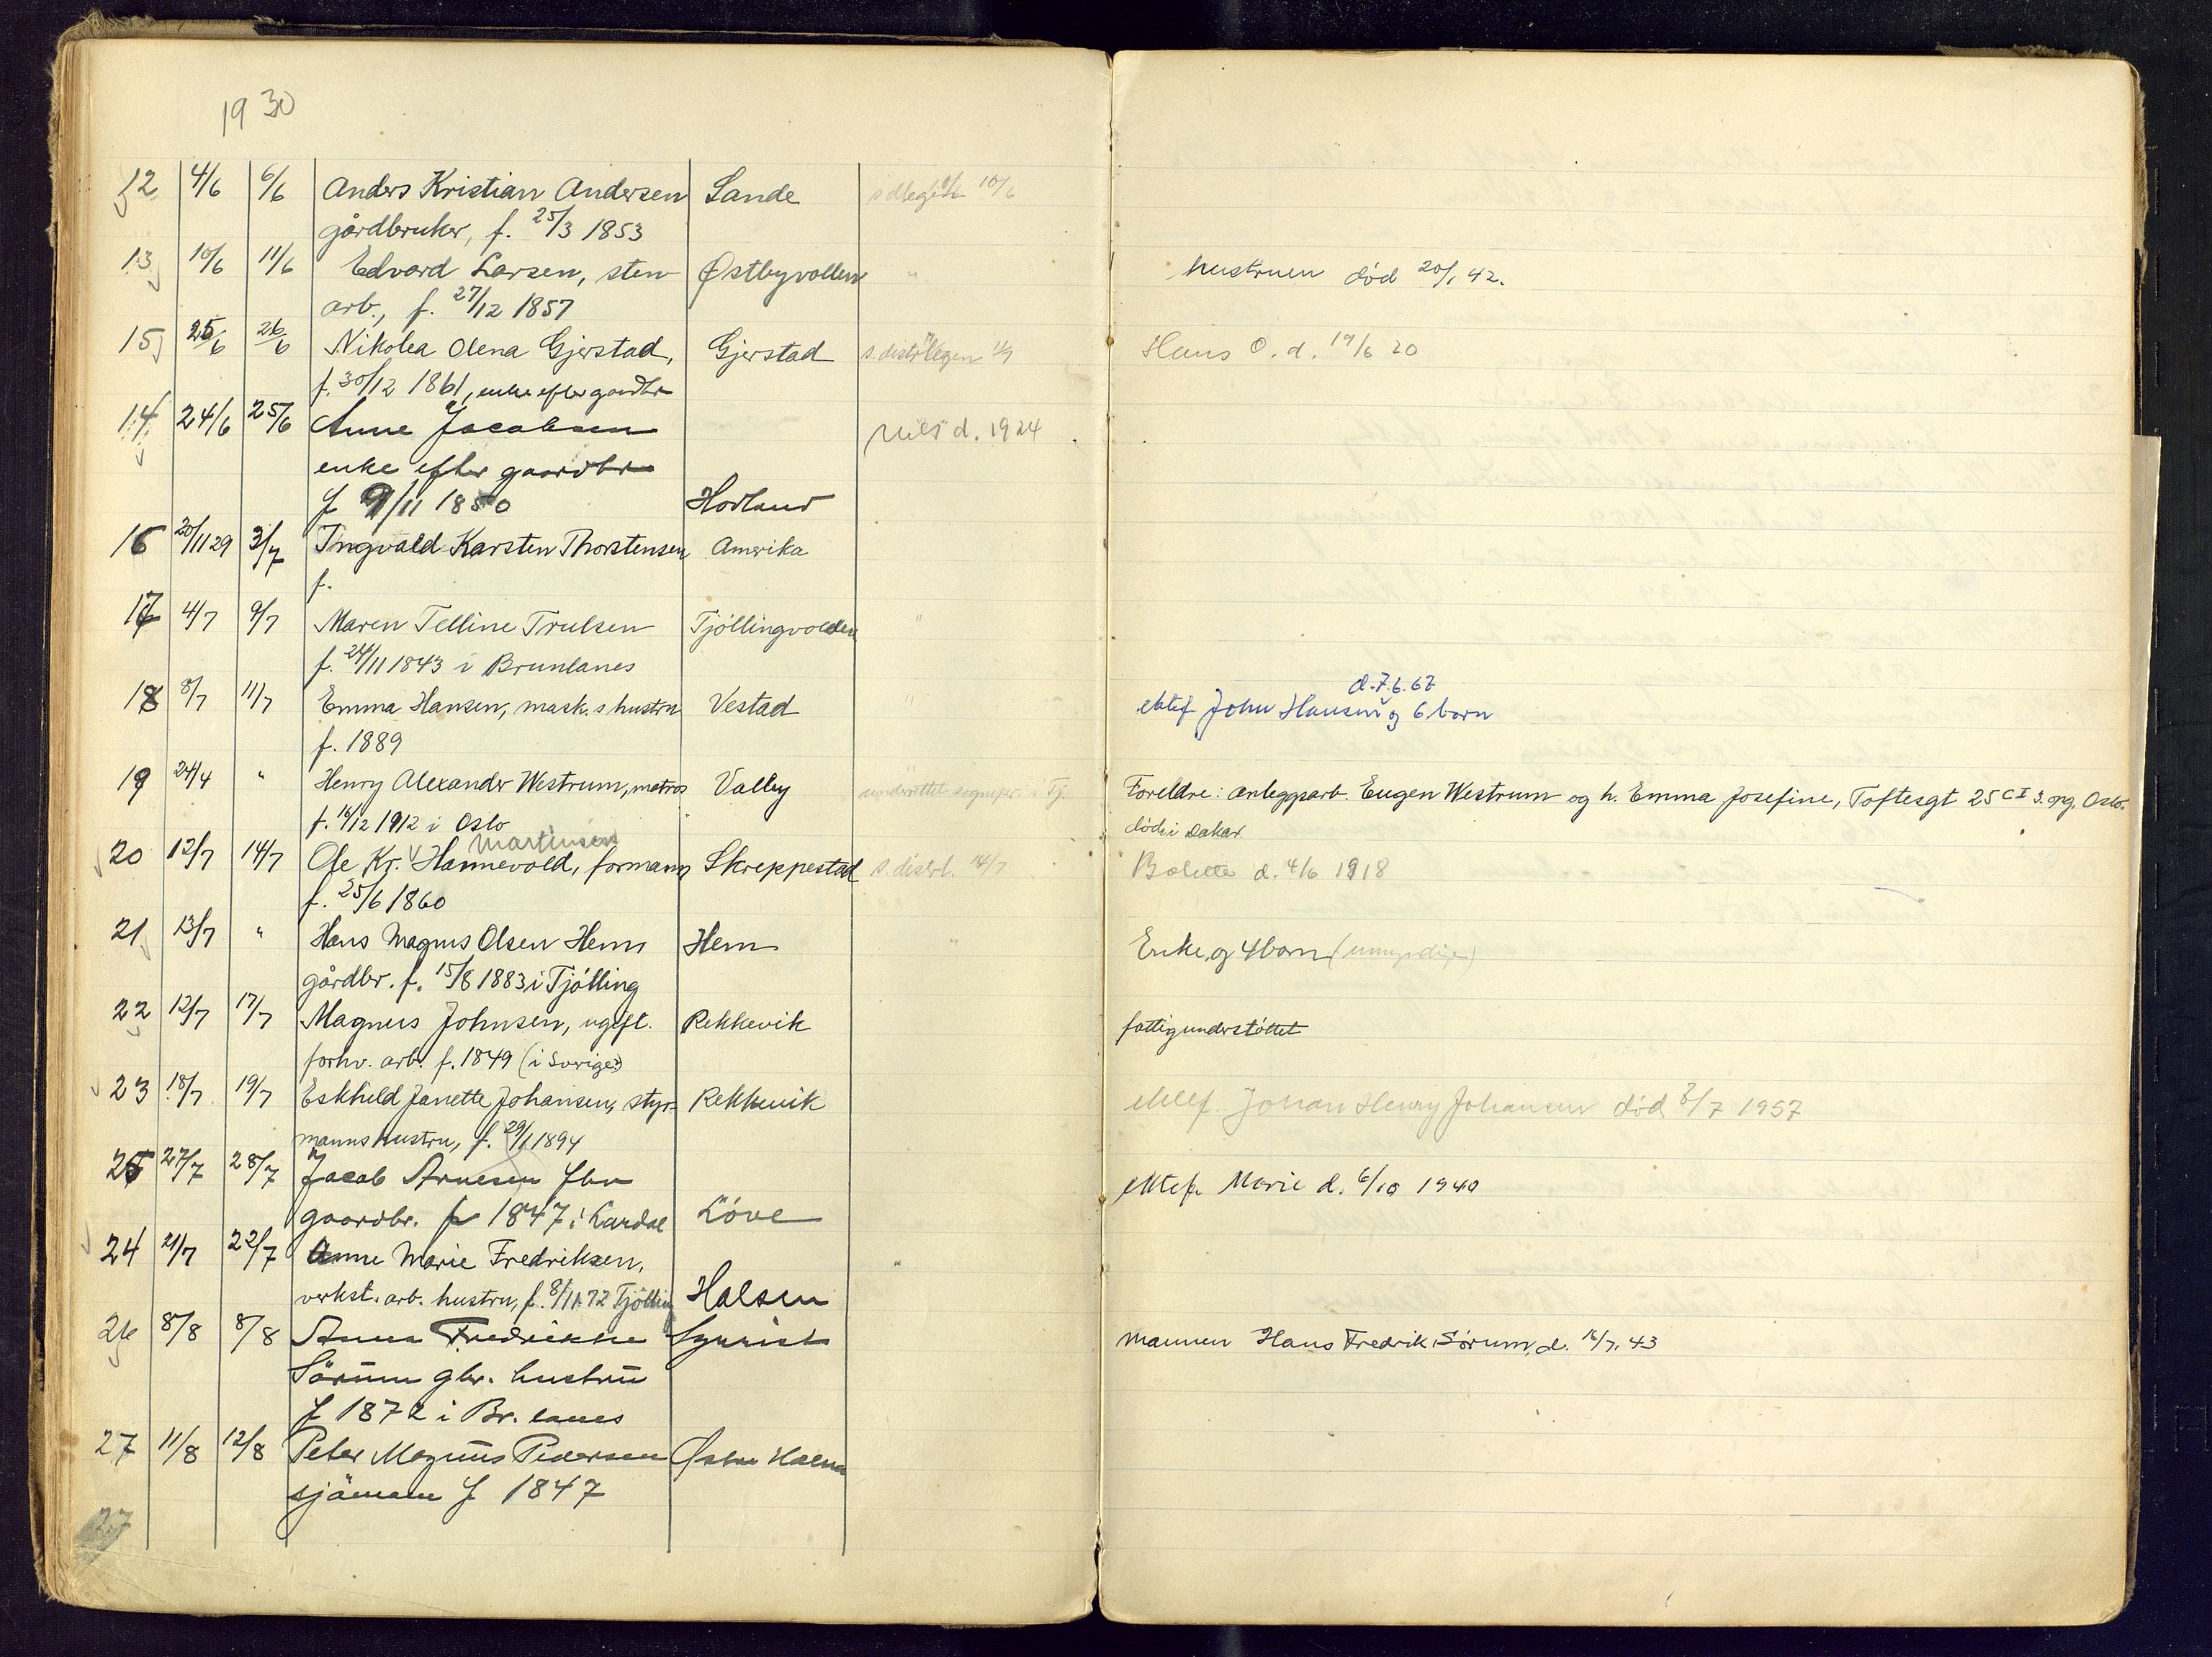 1930
12 4/6 6/6 Anders Kristian Andersen Sande 10/6
gårdbruker, f. 25/3 1853
13 10/6 11/6 Edvard Larsen, sten Østbyvollen " hustruen død 20/1 42.
arb., f. 27/12 1857
15 25/6 26/6 Nikolea Olena Gjerstad, Gjerstad s. distr.legen Hans O. d. 19/6 20
f. 30/12 1861, enke efter gardbr
14 24/6 25/6 Anne Jacobsen Nils d. 1924
enke efter gaardbr
f 9/11 1850 Hovland
16 20/11 29 3/7 Ingvald Karsten Thorstensen Amerika
f.
17 4/7 9/7 Maren Telline Trulsen Tjøllingvolden "
f. 24/11 1843 i Brunlanes
d. 7.6.67
18 8/7 11/7 Emma Hansen, mask.s hustru Vestad " ektef John Hansen og 6 barn
f. 1889
19 24/4 " Henry Alexander Westrum, matros Valby underrettet sognepr. i Tj. Foreldre: anleggsarb. Eugen Westrum og h. Emma Josefine, Toftesgt 25 C I 3. opg. Oslo.
f. 16/12 1912 i Oslo døde i Dakar
Martinsen
20 12/7 14/7 Ole Kr. Hannevold, formann Skreppestad s. distrl. 14/7 Bolette d. 4/6 1918
f. 25/6 1860
21 13/7 " Hans Magnus Olsen Hem Hem " Enke og 4 barn (umyndige)
gårdbr. f. 15/8 1883 i Tjølling
22 12/7 17/7 Magnus Johnsen, ugift. Rekkevik fattigunderstøttet
forhv. arb. f. 1849 (i Sverige)
23 18/7 19/7 Eskhild Janette Johansen, styr- Rekkevik ektef. Johan Henry Johansen død 8/7 1957
mannshustru, f. 29/1 1894
25 27/7 28/7 Jacob Arnesen fhv ektef. Marie d. 6/10 1940
gaardbr. f 1847 i Lardal Löve
24 21/7 22/7 Anne Marie Fredriksen, "
verkst. arb. hustru, f. 8/11 72 Tjølling Halsen
26 8/8 8/8 Anna Fredrikke mannen Hans Fredrik Sørum, d. 16/7. 43
Sörum gbr. hustru
f 1872 i Br. lanes
27 11/8 12/8 Peter Magnus Pedersen Østre Halsen
sjömann f 1847
27